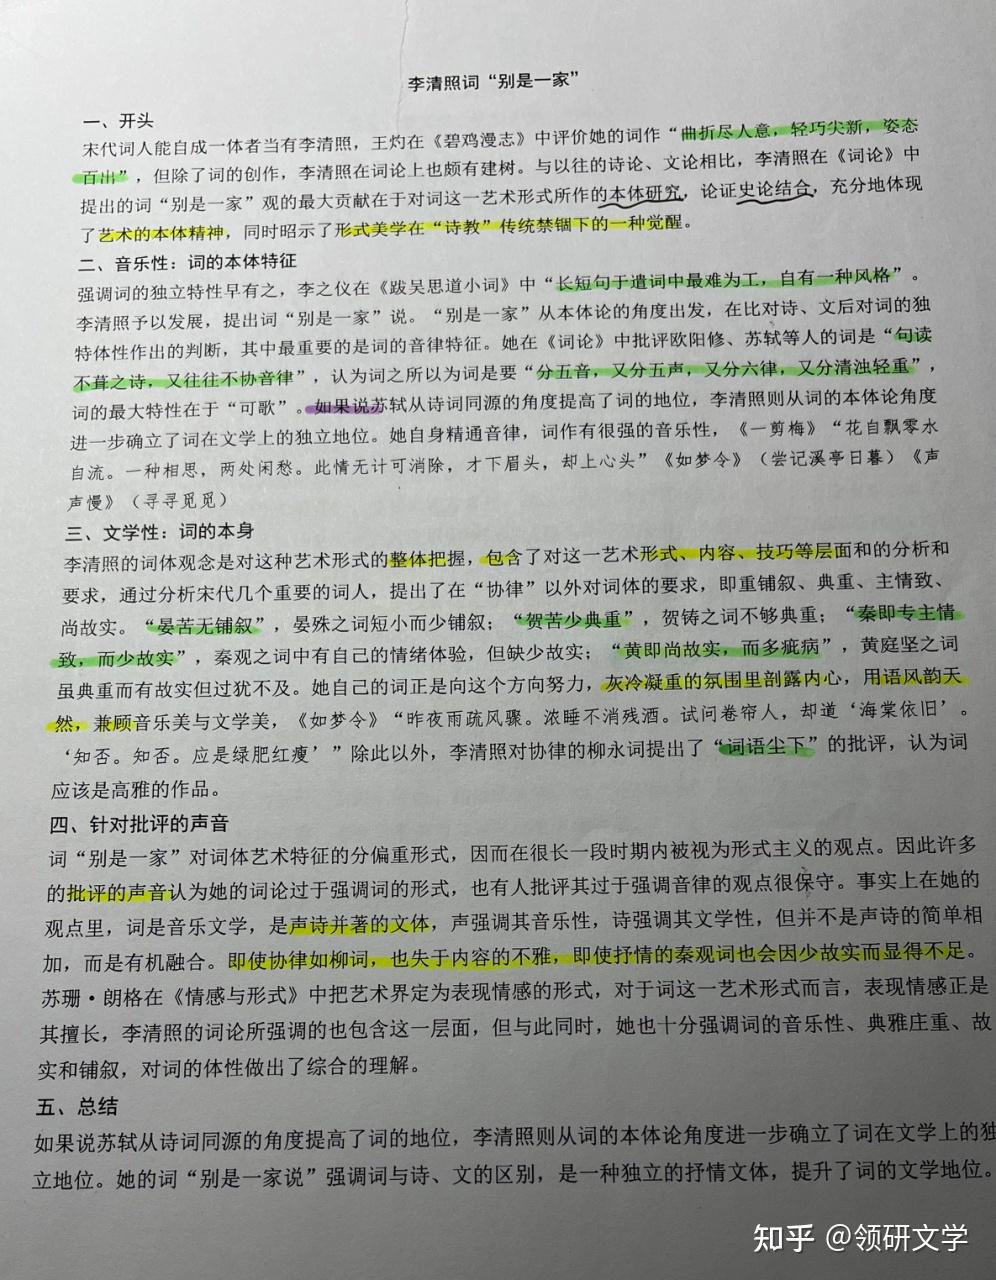 李清照词“别是一家”
一、开头
宋代词人能自成一体者当有李清照，王灼在《碧鸡漫志》中评价她的词作“曲折尽人意，轻巧尖新，姿态
百出”，但除了词的创作，李清照在词论上也颇有建树。与以往的诗论、文论相比，李清照在《词论》中
提出的词“别是一家”观的最大贡献在于对词这一艺术形式所作的本体研究，论证史论结合，充分地体现
了艺术的本体精神，同时昭示了形式美学在“诗教”传统禁锢下的一种觉醒。
二、音乐性：词的本体特征
强调词的独立特性早有之，李之仪在《跋吴思道小词》中“长短句于遣词中最难为工，自有一种风格”。
李清照予以发展，提出词“别是一家”说。“别是一家”从本体论的角度出发，在比对诗、文后对词的独
特体性作出的判断，其中最重要的是词的音律特征。她在《词论》中批评欧阳修、苏轼等人的词是“句读
不葺之诗，又往往不协音律”，认为词之所以为词是要“分五音，又分五声，又分六律，又分清浊轻重”，
词的最大特性在于“可歌”。如果说苏轼从诗词同源的角度提高了词的地位，李清照则从词的本体论角度
进一步确立了词在文学上的独立地位。她自身精通音律，词作有很强的音乐性，《一剪梅》“花自飘零水
自流。一种相思，两处闲愁。此情无计可消除，才下眉头，却上心头”《如梦令》（尝记溪亭日暮）《声
声慢》（寻寻觅觅）
三、文学性：词的本身
李清照的词体观念是对这种艺术形式的整体把握，包含了对这一艺术形式、内容、技巧等层面和的分析和
要求，通过分析宋代几个重要的词人，提出了在“协律”以外对词体的要求，即重铺叙、典重、主情致、
尚故实。“晏苦无铺叙”，晏殊之词短小而少铺叙；“贺苦少典重”，贺铸之词不够典重；“秦即专主情
致，而少故实”，秦观之词中有自己的情绪体验，但缺少故实；“黄即尚故实，而多疵病”，黄庭坚之词
虽典重而有故实但过犹不及。她自己的词正是向这个方向努力，灰冷凝重的氛围里剖露内心，用语风韵天
然，兼顾音乐美与文学美，《如梦令》“昨夜雨疏风骤。浓睡不消残酒。试问卷帘人，却道‘海棠依旧’。
‘知否。知否。应是绿肥红瘦’”除此以外，李清照对协律的柳永词提出了“词语尘下”的批评，认为词
应该是高雅的作品。
四、针对批评的声音
词“别是一家”对词体艺术特征的分偏重形式，因而在很长一段时期内被视为形式主义的观点。因此许多
的批评的声音认为她的词论过于强调词的形式，也有人批评其过于强调音律的观点很保守。事实上在她的
观点里，词是音乐文学，是声诗并著的文体，声强调其音乐性，诗强调其文学性，但并不是声诗的简单相
加，而是有机融合。即使协律如柳词，也失于内容的不雅，即使抒情的秦观词也会因少故实而显得不足。
苏珊·朗格在《情感与形式》中把艺术界定为表现情感的形式，对于词这一艺术形式而言，表现情感正是
其擅长，李清照的词论所强调的也包含这一层面，但与此同时，她也十分强调词的音乐性、典雅庄重、故
实和铺叙，对词的体性做出了综合的理解。
五、总结
如果说苏轼从诗词同源的角度提高了词的地位，李清照则从词的本体论角度进一步确立了词在文学上的独
立地位。她的词“别是一家说”强调词与诗、文的区别，是一种独立的抒情文体，提升了词的文学地位。
知乎 @领研文学